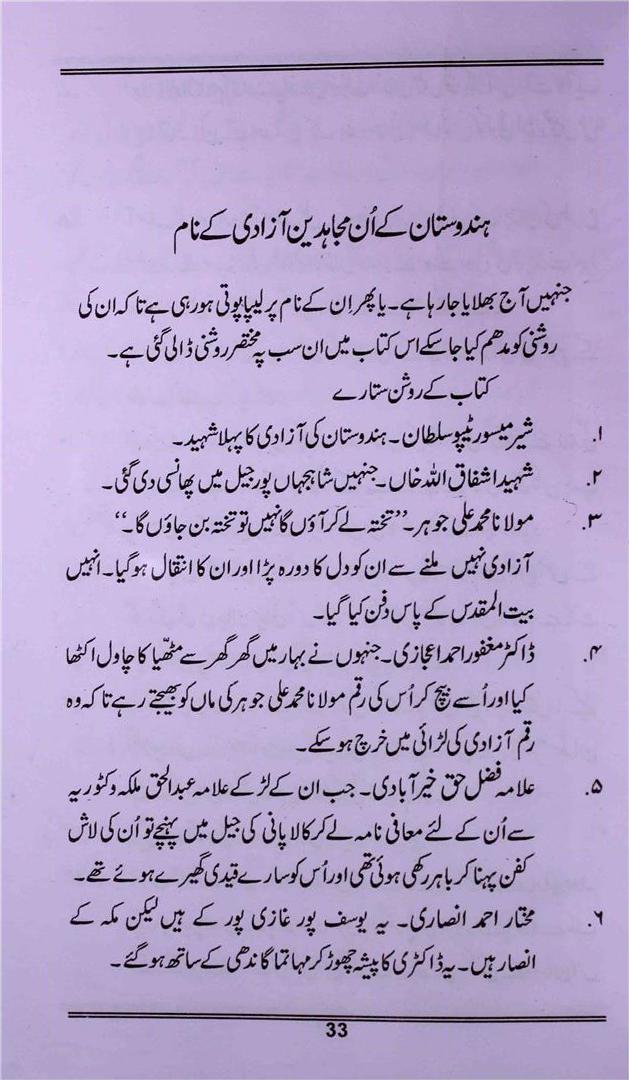 ہندوستان کے اُن مجاہدین آزادی کے نام
جنہیں آج بھلایا جا رہا ہے۔ یا پھر اِن کے نام پر لیپا پوتی ہو رہی ہے تاکہ ان کی
روشنی کو مدھم کیا جا سکے اس کتاب میں ان سب پہ مختصر روشنی ڈالی گئی ہے۔
کتاب کے روشن ستارے
۱. شیر میسور ٹیپو سلطان۔ ہندوستان کی آزادی کا پہلا شہید۔
۲. شہید اشفاق اللہ خاں۔ جنہیں شاہجہاں پور جیل میں پھانسی دی گئی۔
۳. مولانا محمد علی جوہر۔ ”تختہ لے کر آؤں گا نہیں تو تختہ بن جاؤں گا۔“
آزادی نہیں ملنے سے ان کو دل کا دورہ پڑا اور ان کا انتقال ہو گیا۔ انہیں
بیت المقدس کے پاس دفن کیا گیا۔
۴. ڈاکٹر مغفور احمد اعجازی۔ جنہوں نے بہار میں گھر گھر سے مٹھّیا کا چاول اکٹھا
کیا اور اُسے بیچ کر اُس کی رقم مولانا محمد علی جوہر کی ماں کو بھیجتے رہے تاکہ وہ
رقم آزادی کی لڑائی میں خرچ ہو سکے۔
۵. علامہ فضل حق خیر آبادی۔ جب ان کے لڑکے علامہ عبدالحق ملکہ وکٹوریہ
سے اُن کے لئے معافی نامہ لے کر کالا پانی کی جیل میں پہنچے تو اُن کی لاش
کفن پہنا کر باہر رکھی ہوئی تھی اور اُس کو سارے قیدی گھیرے ہوئے تھے۔
۶. مختار احمد انصاری۔ یہ یوسف پور غازی پور کے ہیں لیکن مکہ کے
انصار ہیں۔ یہ ڈاکٹری کا پیشہ چھوڑ کر مہاتما گاندھی کے ساتھ ہو گئے۔
33